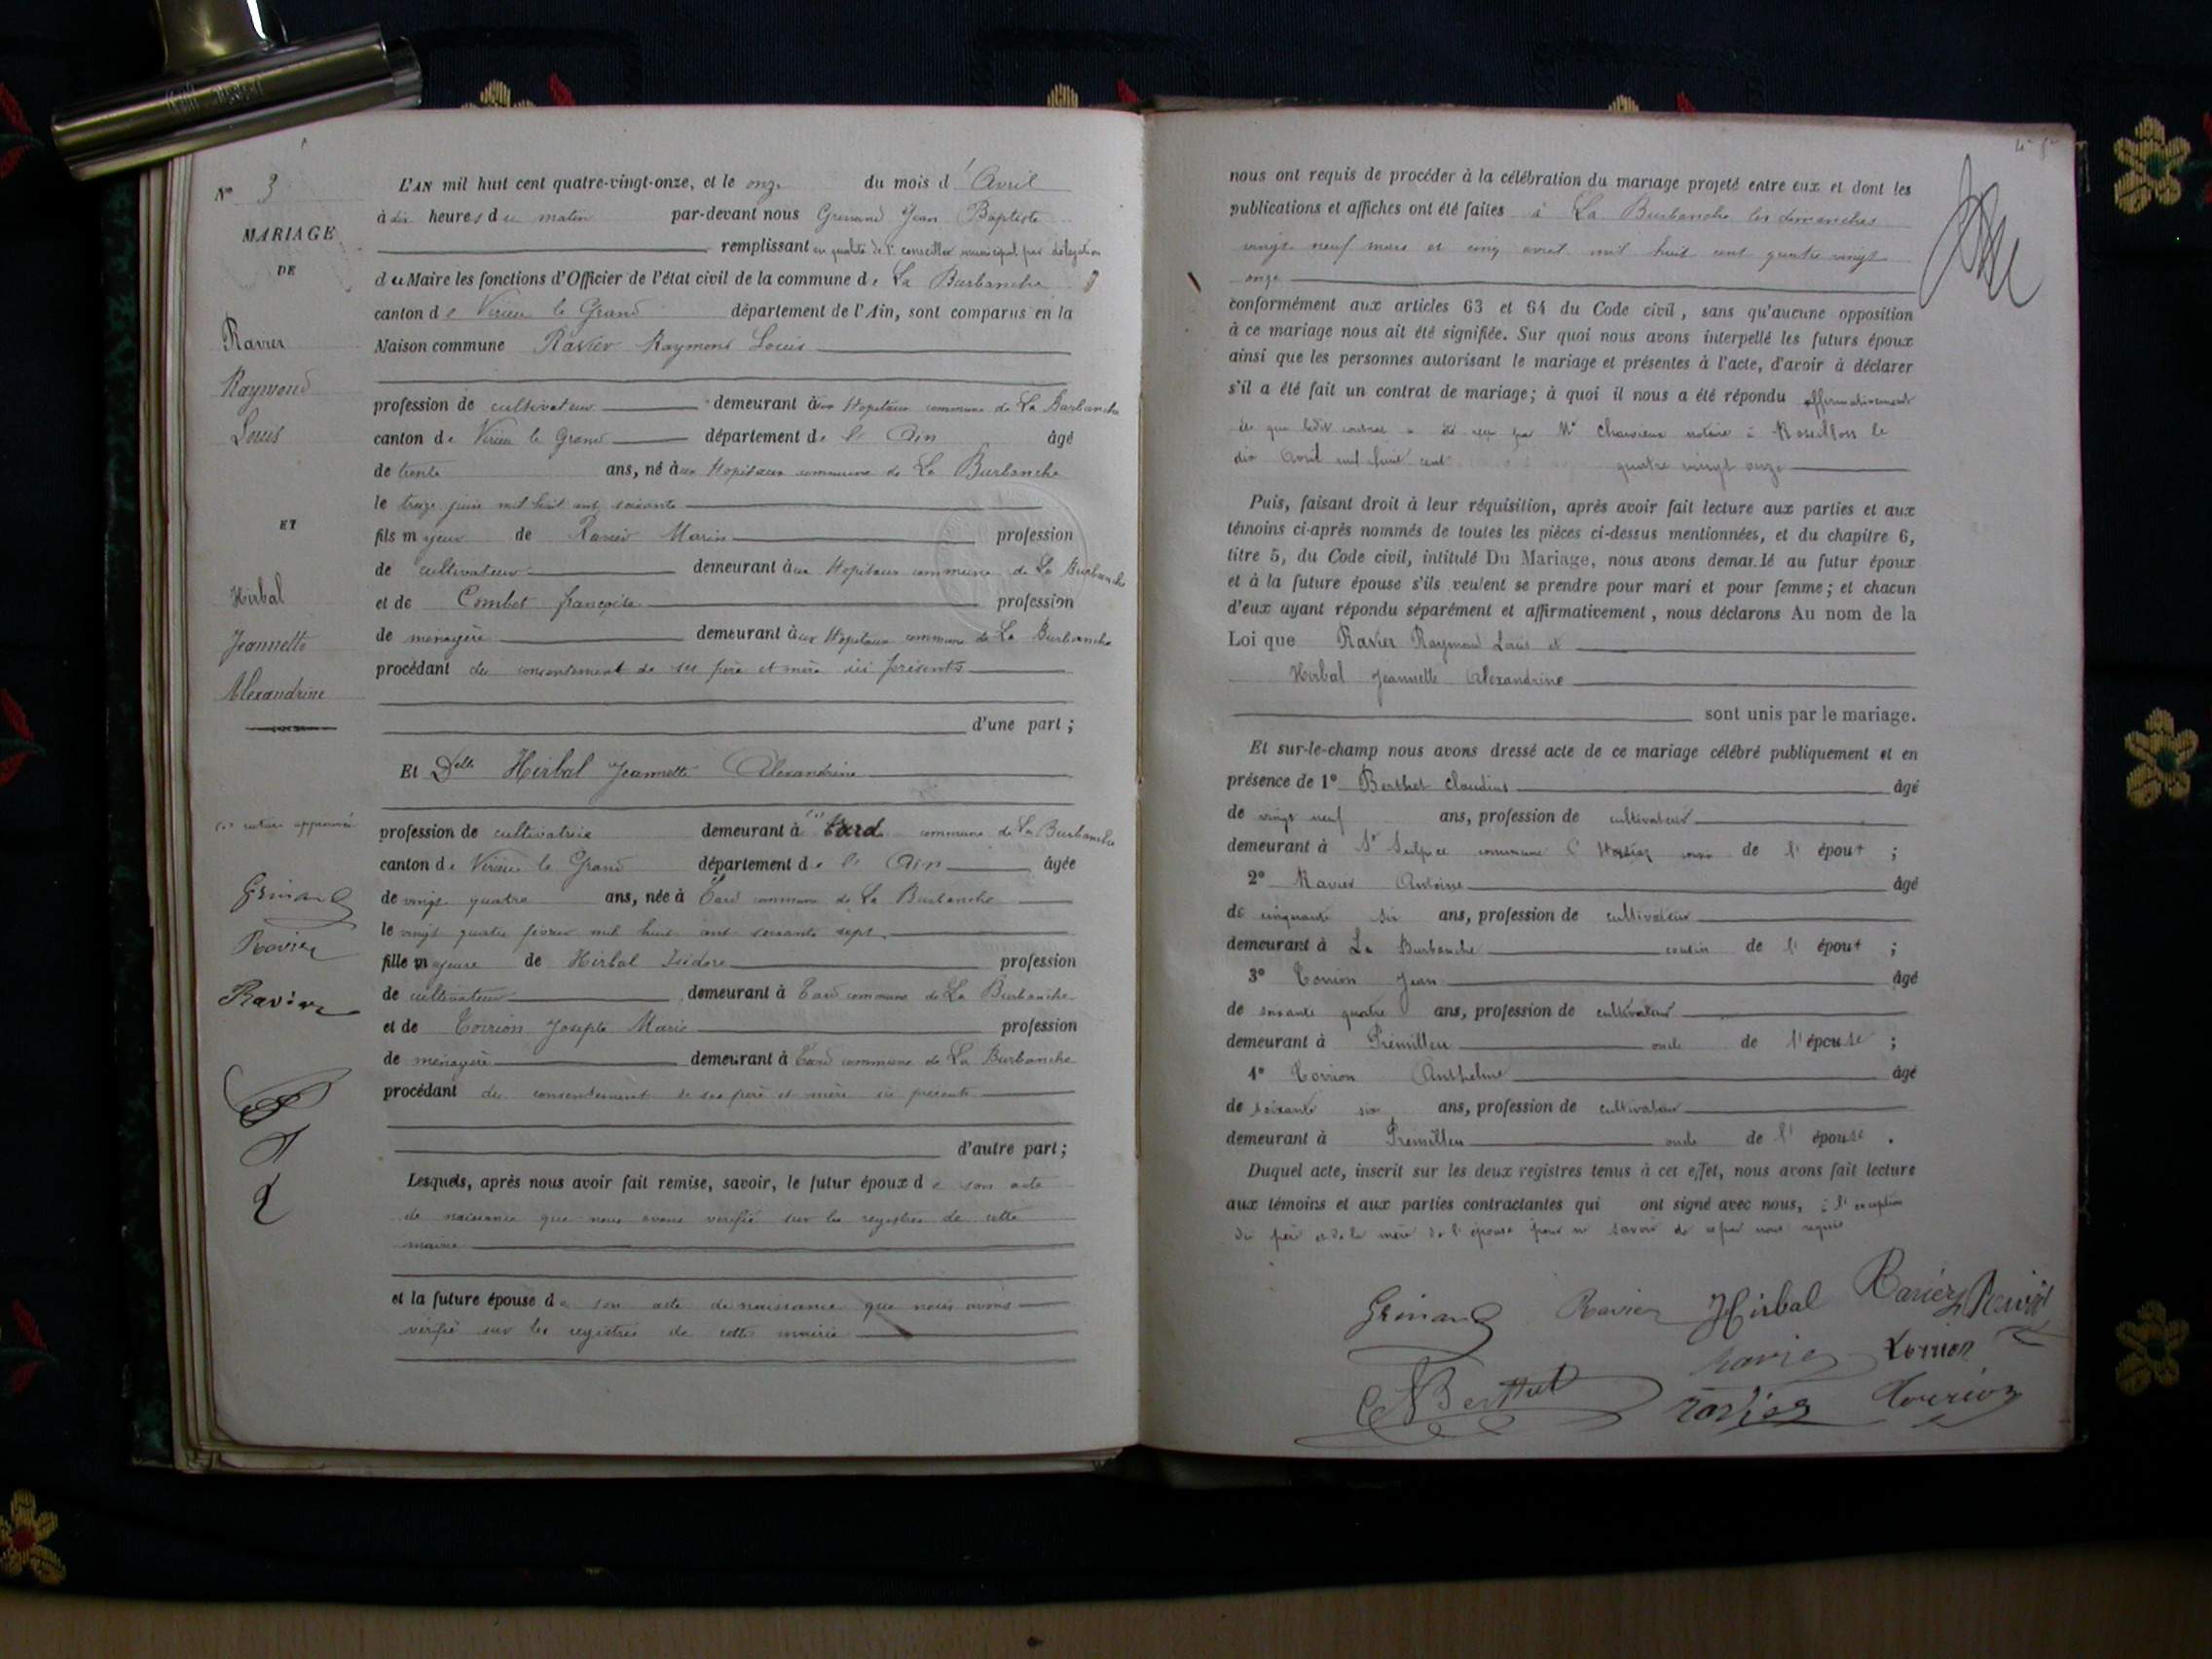 N° 3
MARIAGE
DE
Ravier
Raymond
Louis
ET
Hirbal
Jeannette
Alexandrine
(1) rature approuvée
Grinand
Ravier
Ravier
L'AN mil huit cent quatre-vingt-onze, et le onze du mois d'Avril
à dix heures du matin par-devant nous Grinand Jean Baptiste
remplissant en qualité de 1er conseiller municipal par délégation
du Maire les fonctions d'Officier de l'état civil de la commune de La Burbanche
canton de Virieu le Grand département de l'Ain, sont comparus en la
Maison commune Ravier Raymond Louis
profession de cultivateur demeurant aux Hopitaux commune de La Burbanche
canton de Virieu le Grand département de l'Ain âgé
de trente ans, né aux Hopitaux commune de La Burbanche
le treize juin mil huit cent soixante
fils majeur de Ravier Marin profession
de cultivateur demeurant aux Hopitaux commune de La Burbanche
et de Combet françoise profession
de ménagère demeurant aux Hopitaux commune de La Burbanche
procédant du consentement de ses père et mère ici présents
d'une part ;
Et Delle Hirbal Jeannette Alexandrine
profession de cultivatrice demeurant à (1) Tard commune de La Burbanche
canton de Virieu le Grand département de l'Ain âgée
de vingt quatre ans, née à Tard commune de La Burbanche
le vingt quatre février mil huit cent soixante sept
fille majeure de Hirbal Isidore profession
de cultivateur demeurant à Tard commune de La Burbanche
et de Torrion Josephte Marie profession
de ménagère demeurant à Tard commune de La Burbanche
procédant du consentement de ses père et mère ici présents
d'autre part ;
Lesquels, après nous avoir fait remise, savoir, le futur époux de son acte
de naissance que nous avons vérifié sur les registres de cette
mairie
et la future épouse de son acte de naissance que nous avons
vérifié sur les registres de cette mairie
nous ont requis de procéder à la célébration du mariage projeté entre eux et dont les
publications et affiches ont été faites à La Burbanche les dimanches
vingt neuf mars et cinq avril mil huit cent quatre vingt
onze
conformément aux articles 63 et 64 du Code civil, sans qu'aucune opposition
à ce mariage nous ait été signifiée. Sur quoi nous avons interpellé les futurs époux
ainsi que les personnes autorisant le mariage et présentes à l'acte, d'avoir à déclarer
s'il a été fait un contrat de mariage; à quoi il nous a été répondu affirmativement
et que ledit contrat a été reçu par Me notaire à Rossillon le
dix Avril mil huit cent quatre vingt onze
Puis, faisant droit à leur réquisition, après avoir fait lecture aux parties et aux
témoins ci-après nommés de toutes les pièces ci-dessus mentionnées, et du chapitre 6,
titre 5, du Code civil, intitulé Du Mariage, nous avons demandé au futur époux
et à la future épouse s'ils veulent se prendre pour mari et pour femme; et chacun
d'eux ayant répondu séparément et affirmativement, nous déclarons Au nom de la
Loi que Ravier Raymond Louis et
Hirbal Jeannette Alexandrine
sont unis par le mariage.
Et sur-le-champ nous avons dressé acte de ce mariage célébré publiquement et en
présence de 1° Berthet Claudius âgé
de vingt neuf ans, profession de cultivateur
demeurant à St Sulpice commune de l'époux ;
2° Ravier Antoine âgé
de cinquante six ans, profession de cultivateur
demeurant à La Burbanche cousin de l'époux ;
3° Torrion Jean âgé
de soixante quatre ans, profession de cultivateur
demeurant à Prémillieu oncle de l'épouse ;
4° Torrion Anthelme âgé
de soixante six ans, profession de cultivateur
demeurant à Prémillieu oncle de l'épouse .
Duquel acte, inscrit sur les deux registres tenus à cet effet, nous avons fait lecture
aux témoins et aux parties contractantes qui ont signé avec nous, à l'exception
du père et de la mère de l'épouse pour ne savoir de ce par nous requis
Grinand Ravier Hirbal Ravier Ravier
Ravier Torrion
Berthet Ravier Torrion